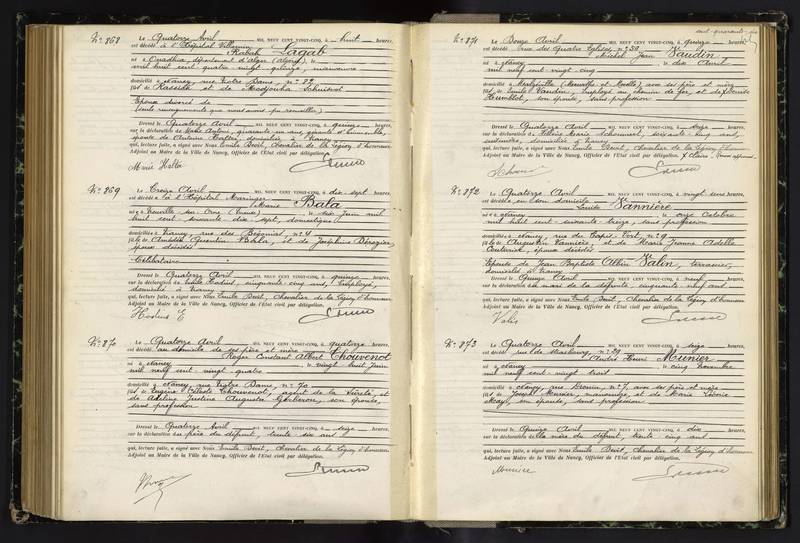 N° 868
Le Quatorze Avril MIL NEUF CENT VINGT-CINQ, à huit heures,
est décédé à l'Hôpital Villemin
Rabah Lagab
département d'Alger
mil huit cent quatre-vingt-quinze, manœuvre
domicilié à Nancy, rue Notre Dame, n° 22
fils de Kassih et de
Époux divorcé de
(sans renseignements
Dressé le Quatorze Avril MIL NEUF CENT VINGT-CINQ, à quinze heures,
sur la déclaration de quarante un ans, gérante d'immeuble,
épouse de Antoine domiciliée à Nancy
qui, lecture faite, a signé avec Nous Emile Chevalier de la Légion d'honneur
Adjoint au Maire de la Ville de Nancy, Officier de l'Etat civil par délégation.
N° 869
Le Treize Avril MIL NEUF CENT VINGT-CINQ, à dix-sept heures,
est décédée à l'Hôpital Maringer
Marie Bala
née à sur Orne (Meuse) le dix Juin mil
huit cent soixante dix sept, domestique
domiciliée à Nancy, rue des Bégonias, n° 4
fille de Amédée Quentin Bala, et de Joséphine
époux décédés
Célibataire
Dressé le Quatorze Avril MIL NEUF CENT VINGT-CINQ, à quinze heures,
sur la déclaration de Emile Hodius, cinquante cinq ans, Employé,
domicilié à Nancy
qui, lecture faite, a signé avec Nous Emile Chevalier de la Légion d'honneur
Adjoint au Maire de la Ville de Nancy, Officier de l'Etat civil par délégation.
Hodius E
N° 870
Le Quatorze Avril MIL NEUF CENT VINGT-CINQ, à quatorze heures,
est décédé au domicile de ses père et mère
Roger Constant Albert Chouvenot
né à Nancy le vingt huit Juin
mil neuf cent vingt quatre
domicilié à Nancy, rue Notre Dame, n° 70
fils de Eugène Chouvenot, agent de la Sûreté, et
de Adeline Justine Augusta Gerberon, son épouse,
sans profession
Dressé le Quatorze Avril MIL NEUF CENT VINGT-CINQ, à seize heures,
sur la déclaration du père du défunt, trente six ans
qui, lecture faite, a signé avec Nous Emile Chevalier de la Légion d'honneur
Adjoint au Maire de la Ville de Nancy, Officier de l'Etat civil par délégation.
N° 871
Le Douze Avril MIL NEUF CENT VINGT-CINQ, à quinze heures,
est décédé rue des Quatre Eglises, n° 59
Michel Jean Vaudin
né à Nancy le dix Avril
mil neuf cent vingt cinq
domicilié à (Meurthe et Moselle) avec ses père et mère
fils de Emile Vaudin, employé au chemin de fer, et de
Humblot, son épouse, sans profession
Dressé le Quatorze Avril MIL NEUF CENT VINGT-CINQ, à seize heures,
sur la déclaration de Marie soixante-cinq ans,
domiciliée à Nancy
qui, lecture faite, a signé avec Nous Emile Chevalier de la Légion d'honneur
Adjoint au Maire de la Ville de Nancy, Officier de l'Etat civil par délégation.
N° 872
Le Quatorze Avril MIL NEUF CENT VINGT-CINQ, à vingt une heures,
est décédée en son domicile
Louise Vannière
née à Nancy le onze Octobre
mil huit cent soixante treize, sans profession
domiciliée à Nancy, rue du Tapis-Vert, n° 9
fille de Augustin Vannière, et de Marie Jeanne Adèle
époux décédés
Epouse de Jean Baptiste Albin Valin, terrassier,
domicilié à Nancy
Dressé le Quinze Avril MIL NEUF CENT VINGT-CINQ, à neuf heures,
sur la déclaration du mari de la défunte, cinquante-neuf ans
qui, lecture faite, a signé avec Nous Emile Chevalier de la Légion d'honneur
Adjoint au Maire de la Ville de Nancy, Officier de l'Etat civil par délégation.
N° 873
Le Quatorze Avril MIL NEUF CENT VINGT-CINQ, à seize heures,
est décédé rue de Strasbourg, n° 29
André Henri Meunier
né à Nancy le cinq Novembre
mil neuf cent vingt trois
domicilié à Nancy, rue Drouin, n° 7, avec ses père et mère
fils de Joseph Meunier, manœuvre, et de Marie Léonie
son épouse, sans profession
Dressé le Quinze Avril MIL NEUF CENT VINGT-CINQ, à dix heures,
sur la déclaration de la mère du défunt, trente cinq ans
qui, lecture faite, a signé avec Nous Emile Chevalier de la Légion d'honneur
Adjoint au Maire de la Ville de Nancy, Officier de l'Etat civil par délégation.